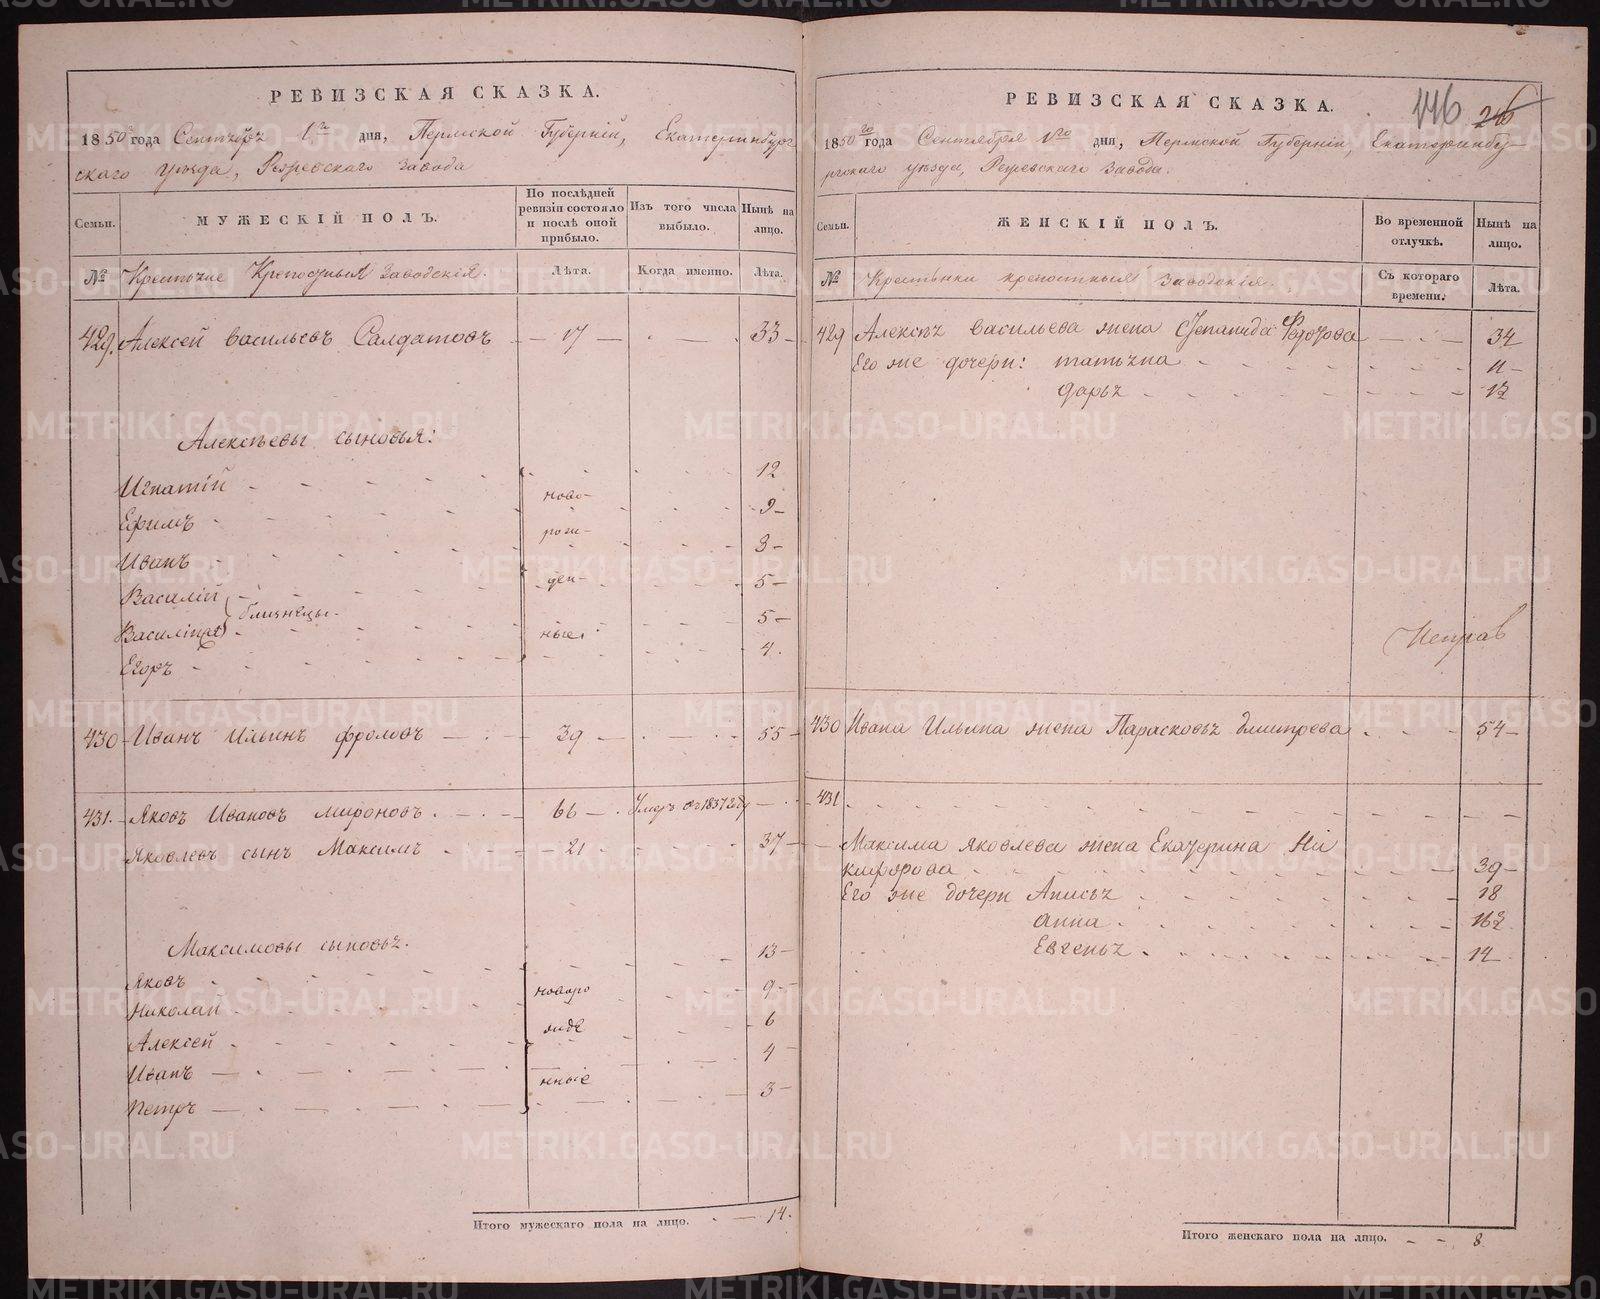 РЕВИЗСКАЯ СКАЗКА.
1850 года Сентября 1го дня, Пермской Губерніи, Екатеринбург
скаго уѣзда, Режевскаго завода
Семьи.
МУЖЕСКІЙ ПОЛЪ.
По послѣдней ревизіи состояло и послѣ оной прибыло.
Изъ того числа выбыло.
Нынѣ на лицо.
№
Крестьяне Крепостныя Заводскія.
Лѣта.
Когда именно.
Лѣта.
429. Алексей Васильевъ Салдатовъ 17 33
Алексѣевы сыновья:
Игнатій 12
Ефимъ 9
Иванъ 8
Василій 5
близнецы
Василій 5
Егоръ 4
ново-
рож-
ден-
ные.
430 Иванъ Ильинъ Фроловъ 39 55
431. Яковъ Ивановъ Мироновъ 66 Умеръ въ 1837 году
Яковлевъ сынъ Максимъ 21 37
Максимовы сыновья.
Яковъ 13
Николай 9
Алексей 6
Иванъ 4
Петръ 3
новоро
жде
нные
Итого мужескаго пола на лицо. 14.
РЕВИЗСКАЯ СКАЗКА.
146 26
1850го года Сентября 1го дня, Пермской Губерніи, Екатеринбу
ргскаго уѣзда, Режевскаго завода.
Семьи.
ЖЕНСКІЙ ПОЛЪ.
Во временной отлучкѣ.
Нынѣ на лицо.
№
Крестьянки крепостныя заводскія.
Съ котораго времени.
Лѣта.
429 Алексѣя Васильева жена Степанида Федотова 34
Его же дочери: Татьяна 11
Дарья
Исправ
430 Ивана Ильина жена Парасковья Дмитрева 54
431
Максима Яковлева жена Екатерина Ни
кифорова 39
Его же дочери Анисья 18
Анна
Евгенья 14
Итого женскаго пола на лицо. 8
METRIKI.GASO-URAL.RU